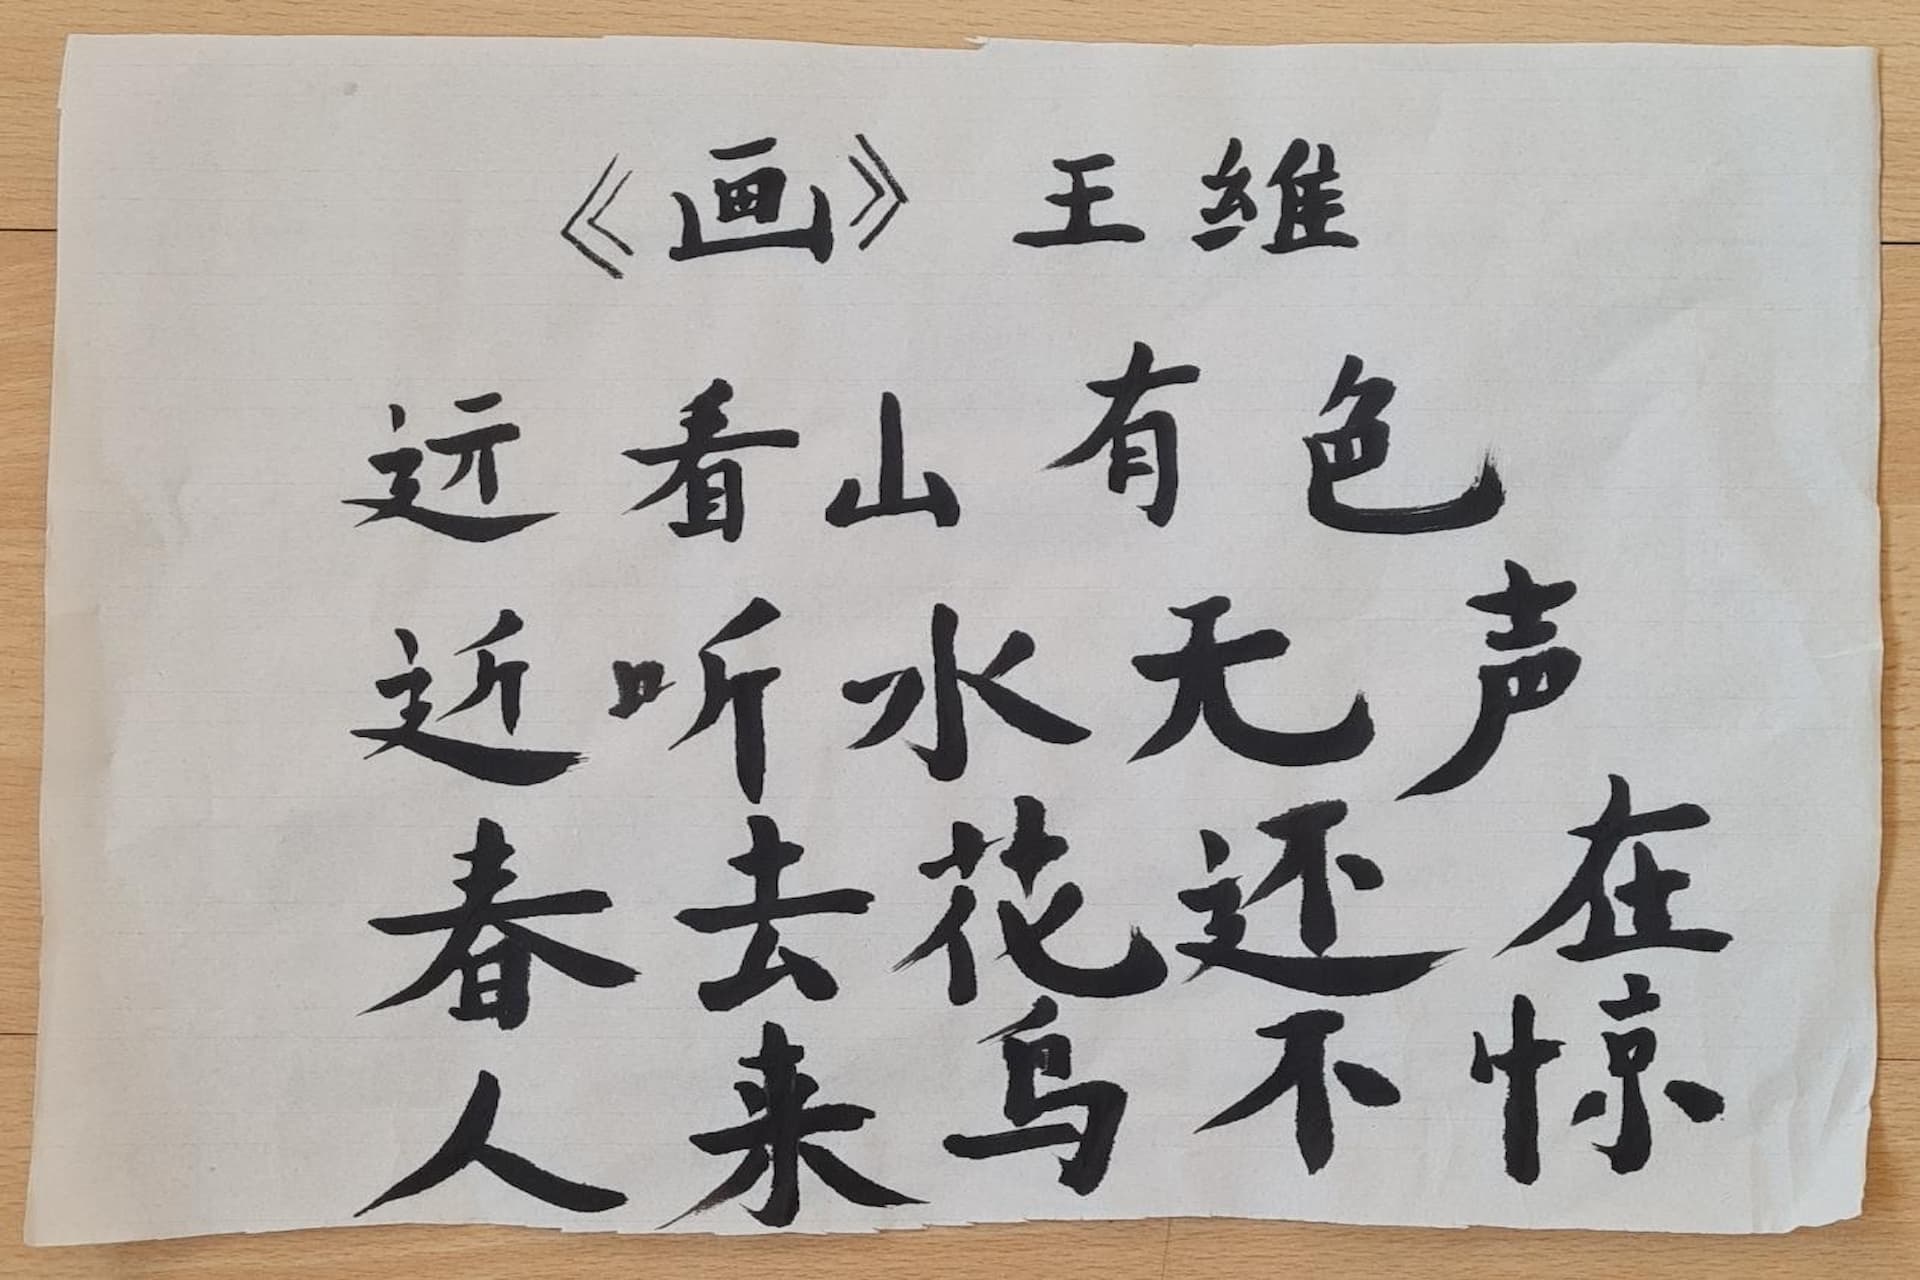 《画》 王维
远看山有色
近听水无声
春去花还在
人来鸟不惊